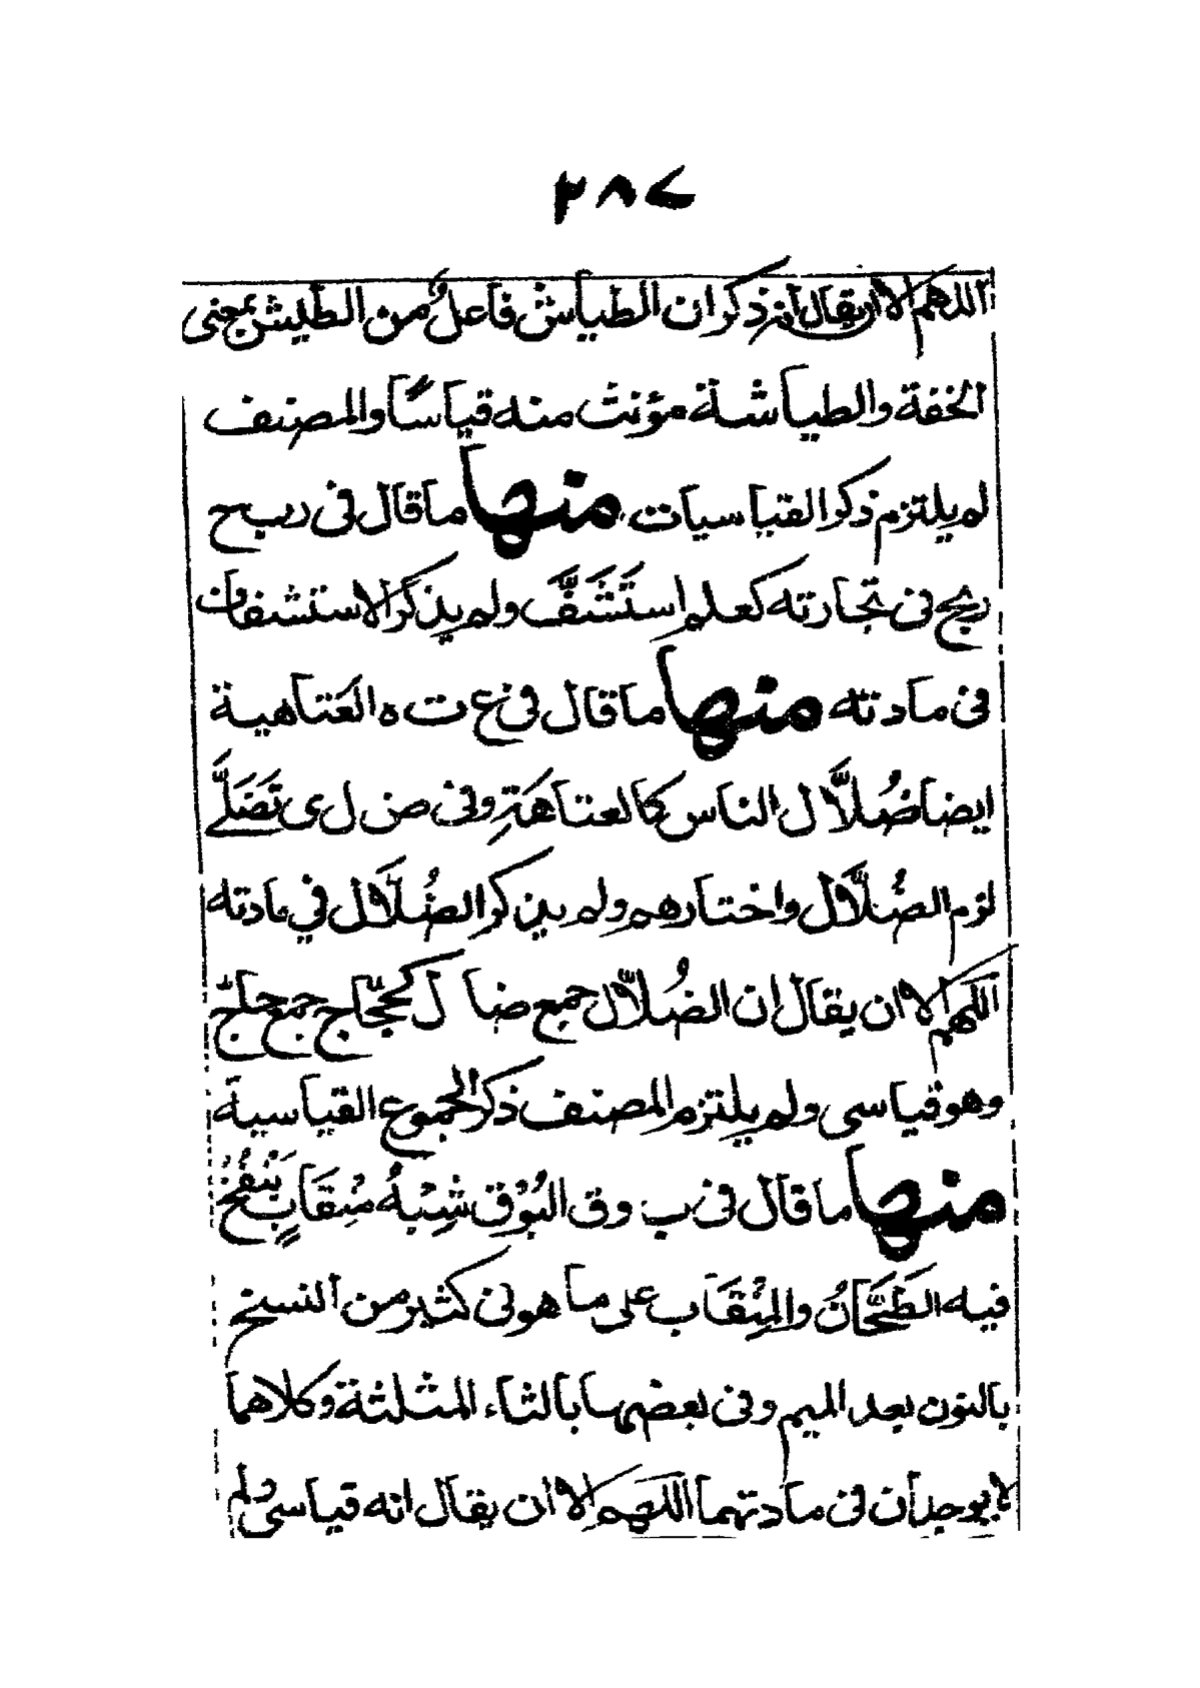 ٣٨٧
اللهم الا ان يقال انه ذكر ان الطياش فاعلٌ من الطيش بمعنى
الخفة والطياشة مؤنث منه قياسًا والمصنف
لم يلتزم ذكر القياسيات منها ما قال فى ر ب ح
ربح فى تجارته كعلم اِستَشَفَّ ولم يذكر الاستشفاف
فى مادته منها ما قال فى ع ت ه العَتاهية
ايضا ضُلاَّل الناس كالعتاهَةِ وفى ض ل ى تَضَلَّے
لزم الضُلاَّل واختارهم ولم يذكر الضُلاَّل في مادته
اللهم الا ان يقال ان الضُلاَّل جمع ضال كحجّاج جمع حاجّ
وهو قياسى ولم يلتزم المصنف ذكر الجموع القياسية
منها ما قال فى ب وق البُوْق شِبْهُ مِنقَابٍ يَنْفُخُ
فيه الطَّحَّانُ والمِنْقَاب على ما هو فى كثير من النسخ
بالنون بعد الميم وفى بعضها بالثاء المثلثة وكلاهما
لا يوجدان فى مادتهما اللهم الا ان يقال انه قياسى ولم